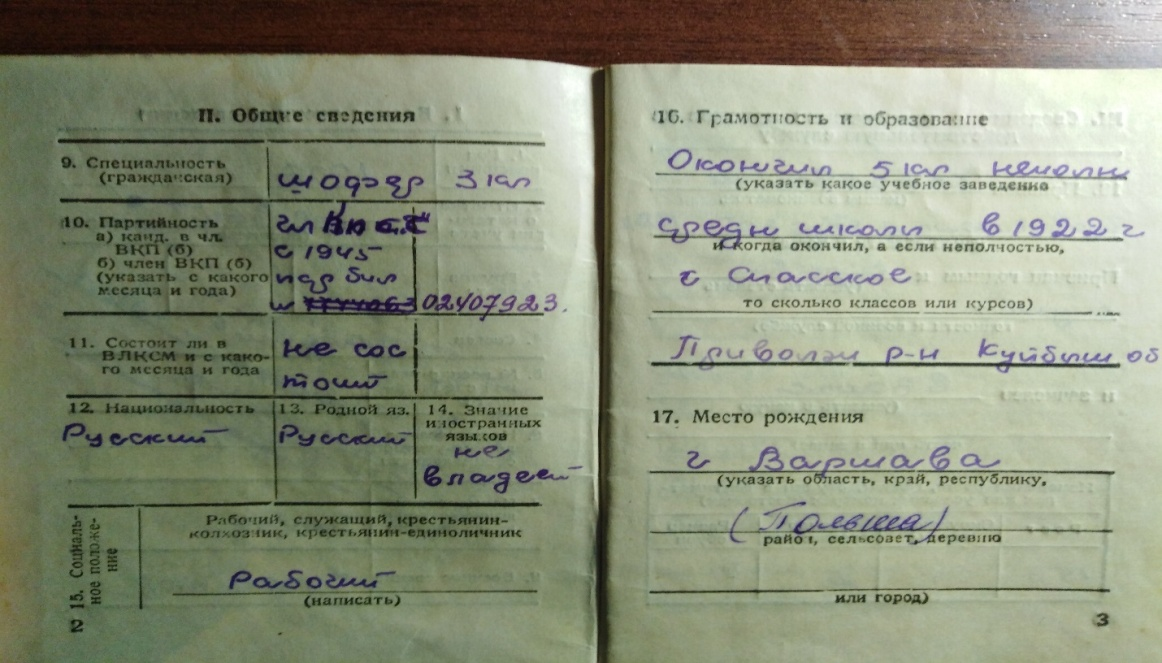 II. Общие сведения
9. Специальность
(гражданская)
шофер 3 кл
10. Партийность
а) канд. в чл.
ВКП (б)
б) член ВКП (б)
(указать с какого
месяца и года)
чл
с 1945
пар бил
02407923.
11. Состоит ли в
ВЛКСМ и с како-
го месяца и года
не сос
тоит
12. Национальность
Русский
13. Родной яз.
Русский
14. Знание
иностранных
языков
не
владеет
15. Социаль-
ное положе-
ние
Рабочий, служащий, крестьянин-
колхозник, крестьянин-единоличник
Рабочий
(написать)
2
16. Грамотность и образование
Окончил 5 кл неполн
(указать какое учебное заведение
средн школы в 1922 г
и когда окончил, а если неполностью,
с Спасское
то сколько классов или курсов)
Приволж р-н Куйбыш об
17. Место рождения
г Варшава
(указать область, край, республику,
(Польша)
район, сельсовет, деревню
или город)
3